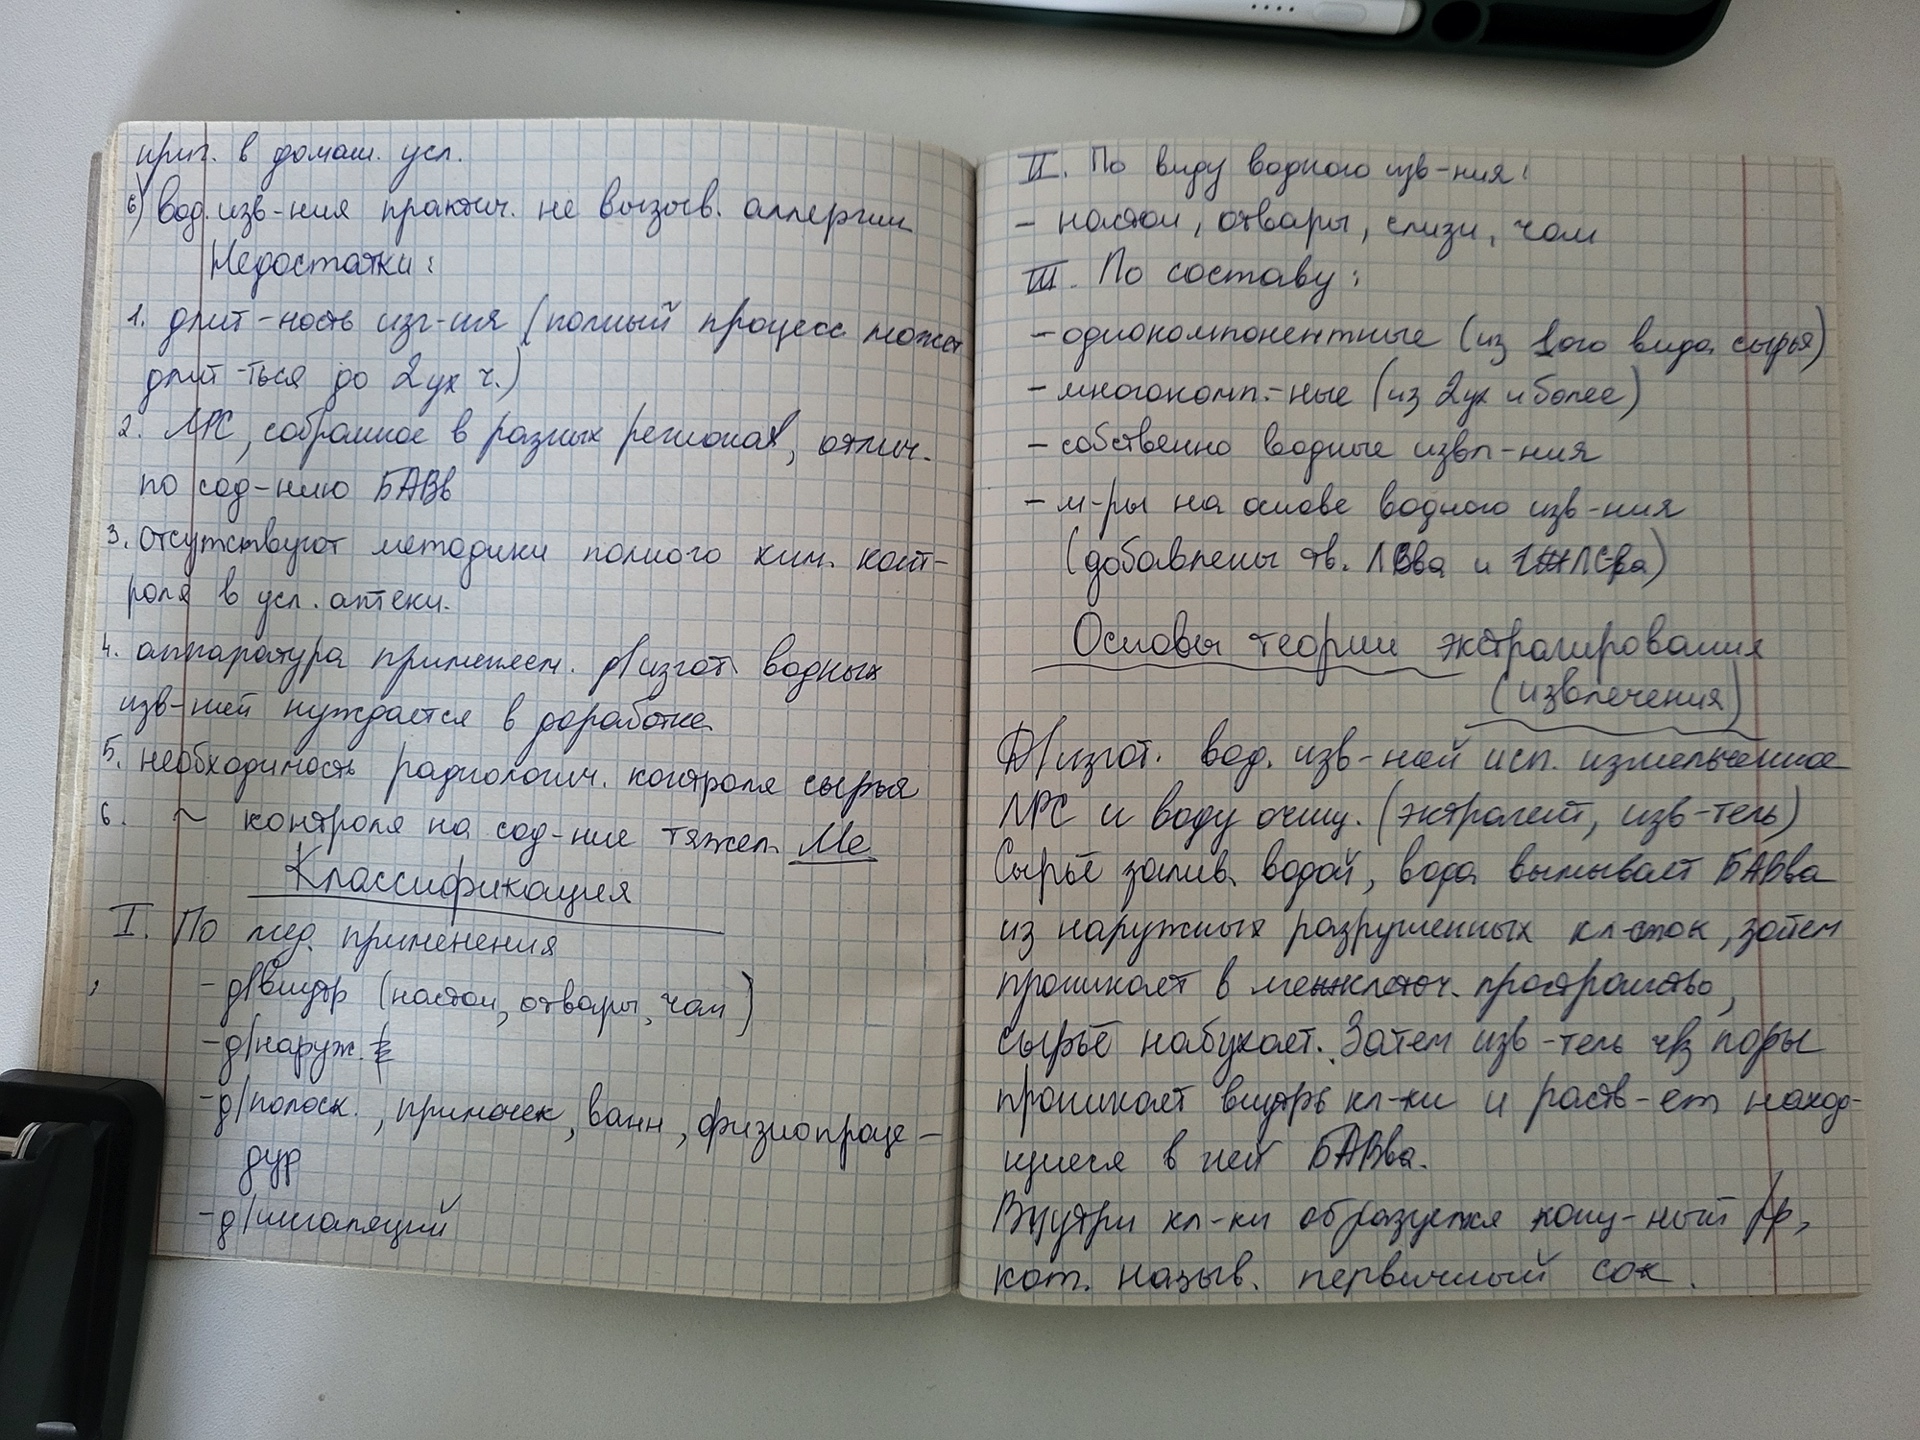 приг. в домаш. усл.
6) вод. изв-ния практич. не вызыв. аллергии
Недостатки:
1. длит-ность изг-ия (полный процесс может
длит-ться до 2ух ч.)
2. ЛРС, собранное в разных регионах, отлич.
по сод-нию БАВв
3. отсутствуют методики полного хим. конт-
роля в усл. аптеки.
4. аппаратура применяем. д/изгот. водных
изв-ний нуждается в доработке
5. необходимость радиологич. контроля сырья
6. ~ контроля на сод-ние тяжел. Ме
Классификация
I. По мед. применения
- д/внутр (настои, отвары, чаи)
- д/наруж.
- д/полоск., примочек, ванн, физиопроце-
дур
- д/ингаляций
II. По виду водного изв-ния:
- настои, отвары, слизи, чаи
III. По составу:
- однокомпонентные (из 1ого вида сырья)
- многокомп.-ные (из 2ух и более)
- собственно водные извл-ния
- м-ры на основе водного изв-ния
(добавлены тв. ЛВва и ЛСва)
Основы теории экстрагирования
(извлечения)
Д/изгот. вод. изв-ний исп. измельченное
ЛРС и воду очищ. (экстрагент, изв-тель)
Сырьё залив. водой, вода вымывает БАВва
из наружных разрушенных кл-сток, затем
проникает в межклеточ. пространство,
сырьё набухает. Затем изв-тель ч/з поры
проникает внутрь кл-ки и раств-ет наход-
щиеся в ней БАВва.
Внутри кл-ки образуется конц-ный р/р,
кот. назыв. первичный сок.